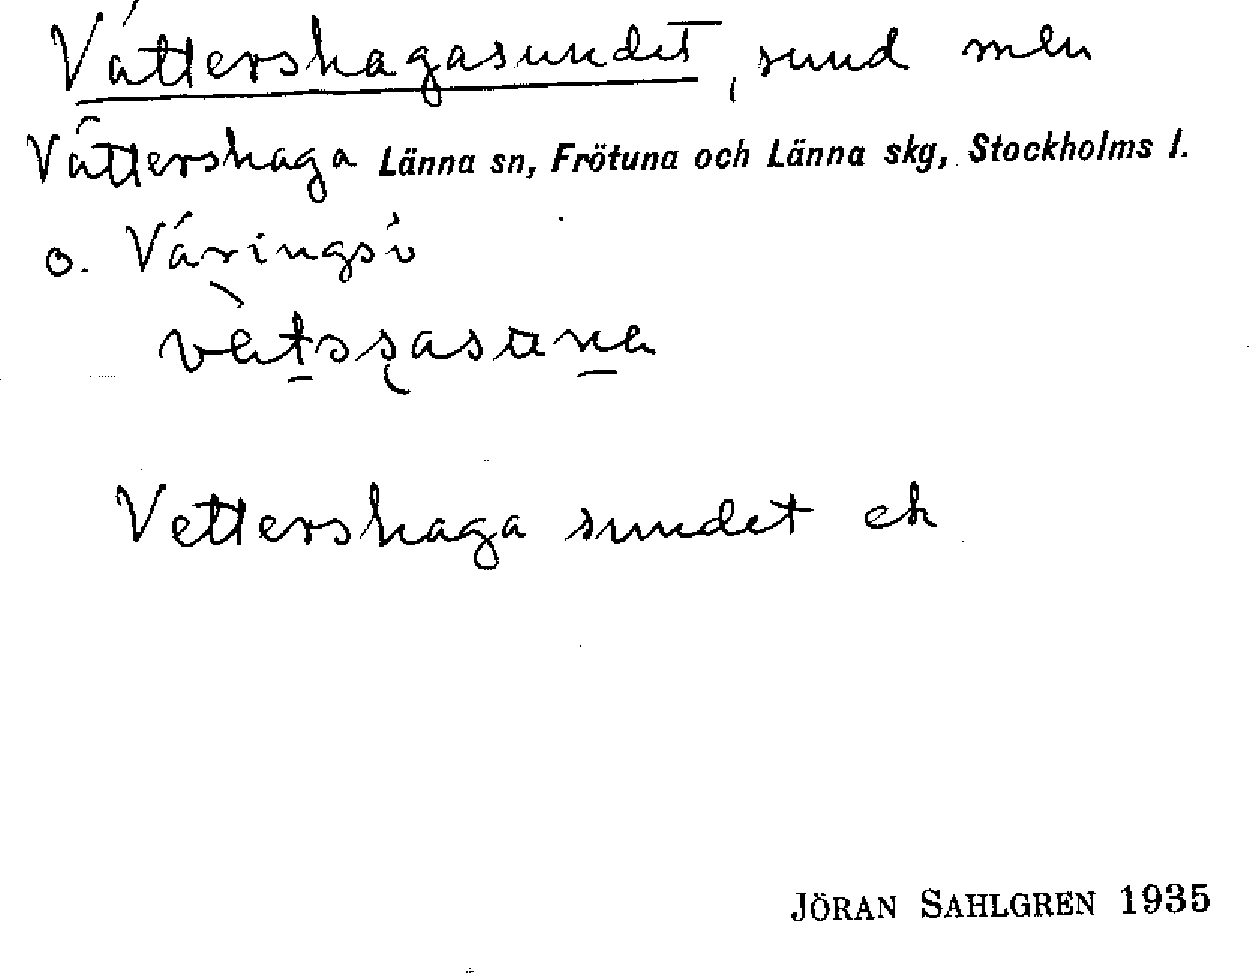 Vättershagasundet, sund mln
Vättershaga Länna sn, Frötuna och Länna skg, Stockholms l.
o. Väringsö
Vettershaga sundet ek
JÖRAN SAHLGREN 1935